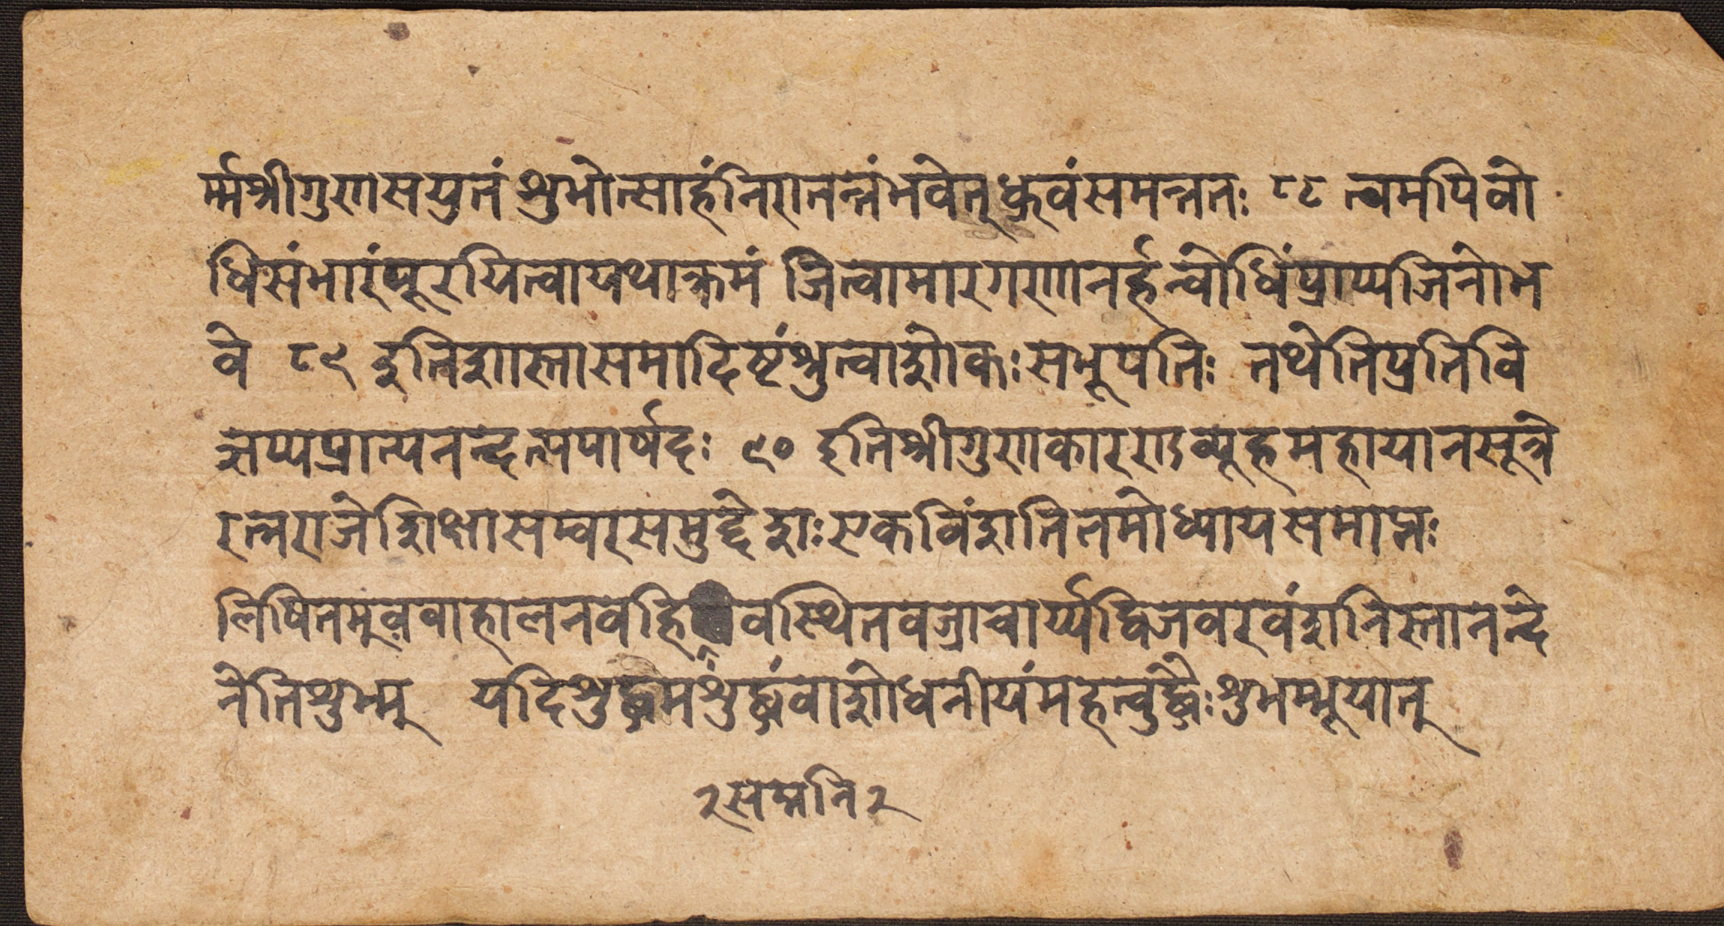 र्म्मश्रीगुणसयुतं शुभोत्साहंनिरातन्तंभवेत्ध्रुवंसमन्ततः ८८ त्वमपिवो
धिसंभारंपूरयित्वायथाक्रमं जित्वामारगणानर्हन्वोधिंप्राप्यजिनोभ
वे ८९ इतिशास्तासमादिष्टंश्रुत्वाशोकःसभूपतिः तथेतिप्रतिवि
ज्ञप्यप्रात्यनन्दत्सपार्षदः ९० इतिश्रीगुणकारण्डव्यूहमहायानसूत्रे
रत्नराजेशिक्षासम्वरसमुद्देशःएकविंशतितमोध्यायसमाप्तः
लिषितमुववाहालनवहि वस्थितवज्राचार्य्यद्विजवरवंशनिस्तानन्दे
नेतिशुभम् यदिशुद्धमशुद्धंवाशोधनीयंमहत्वुद्धैःशुभम्भूयात्
२सम्मति२